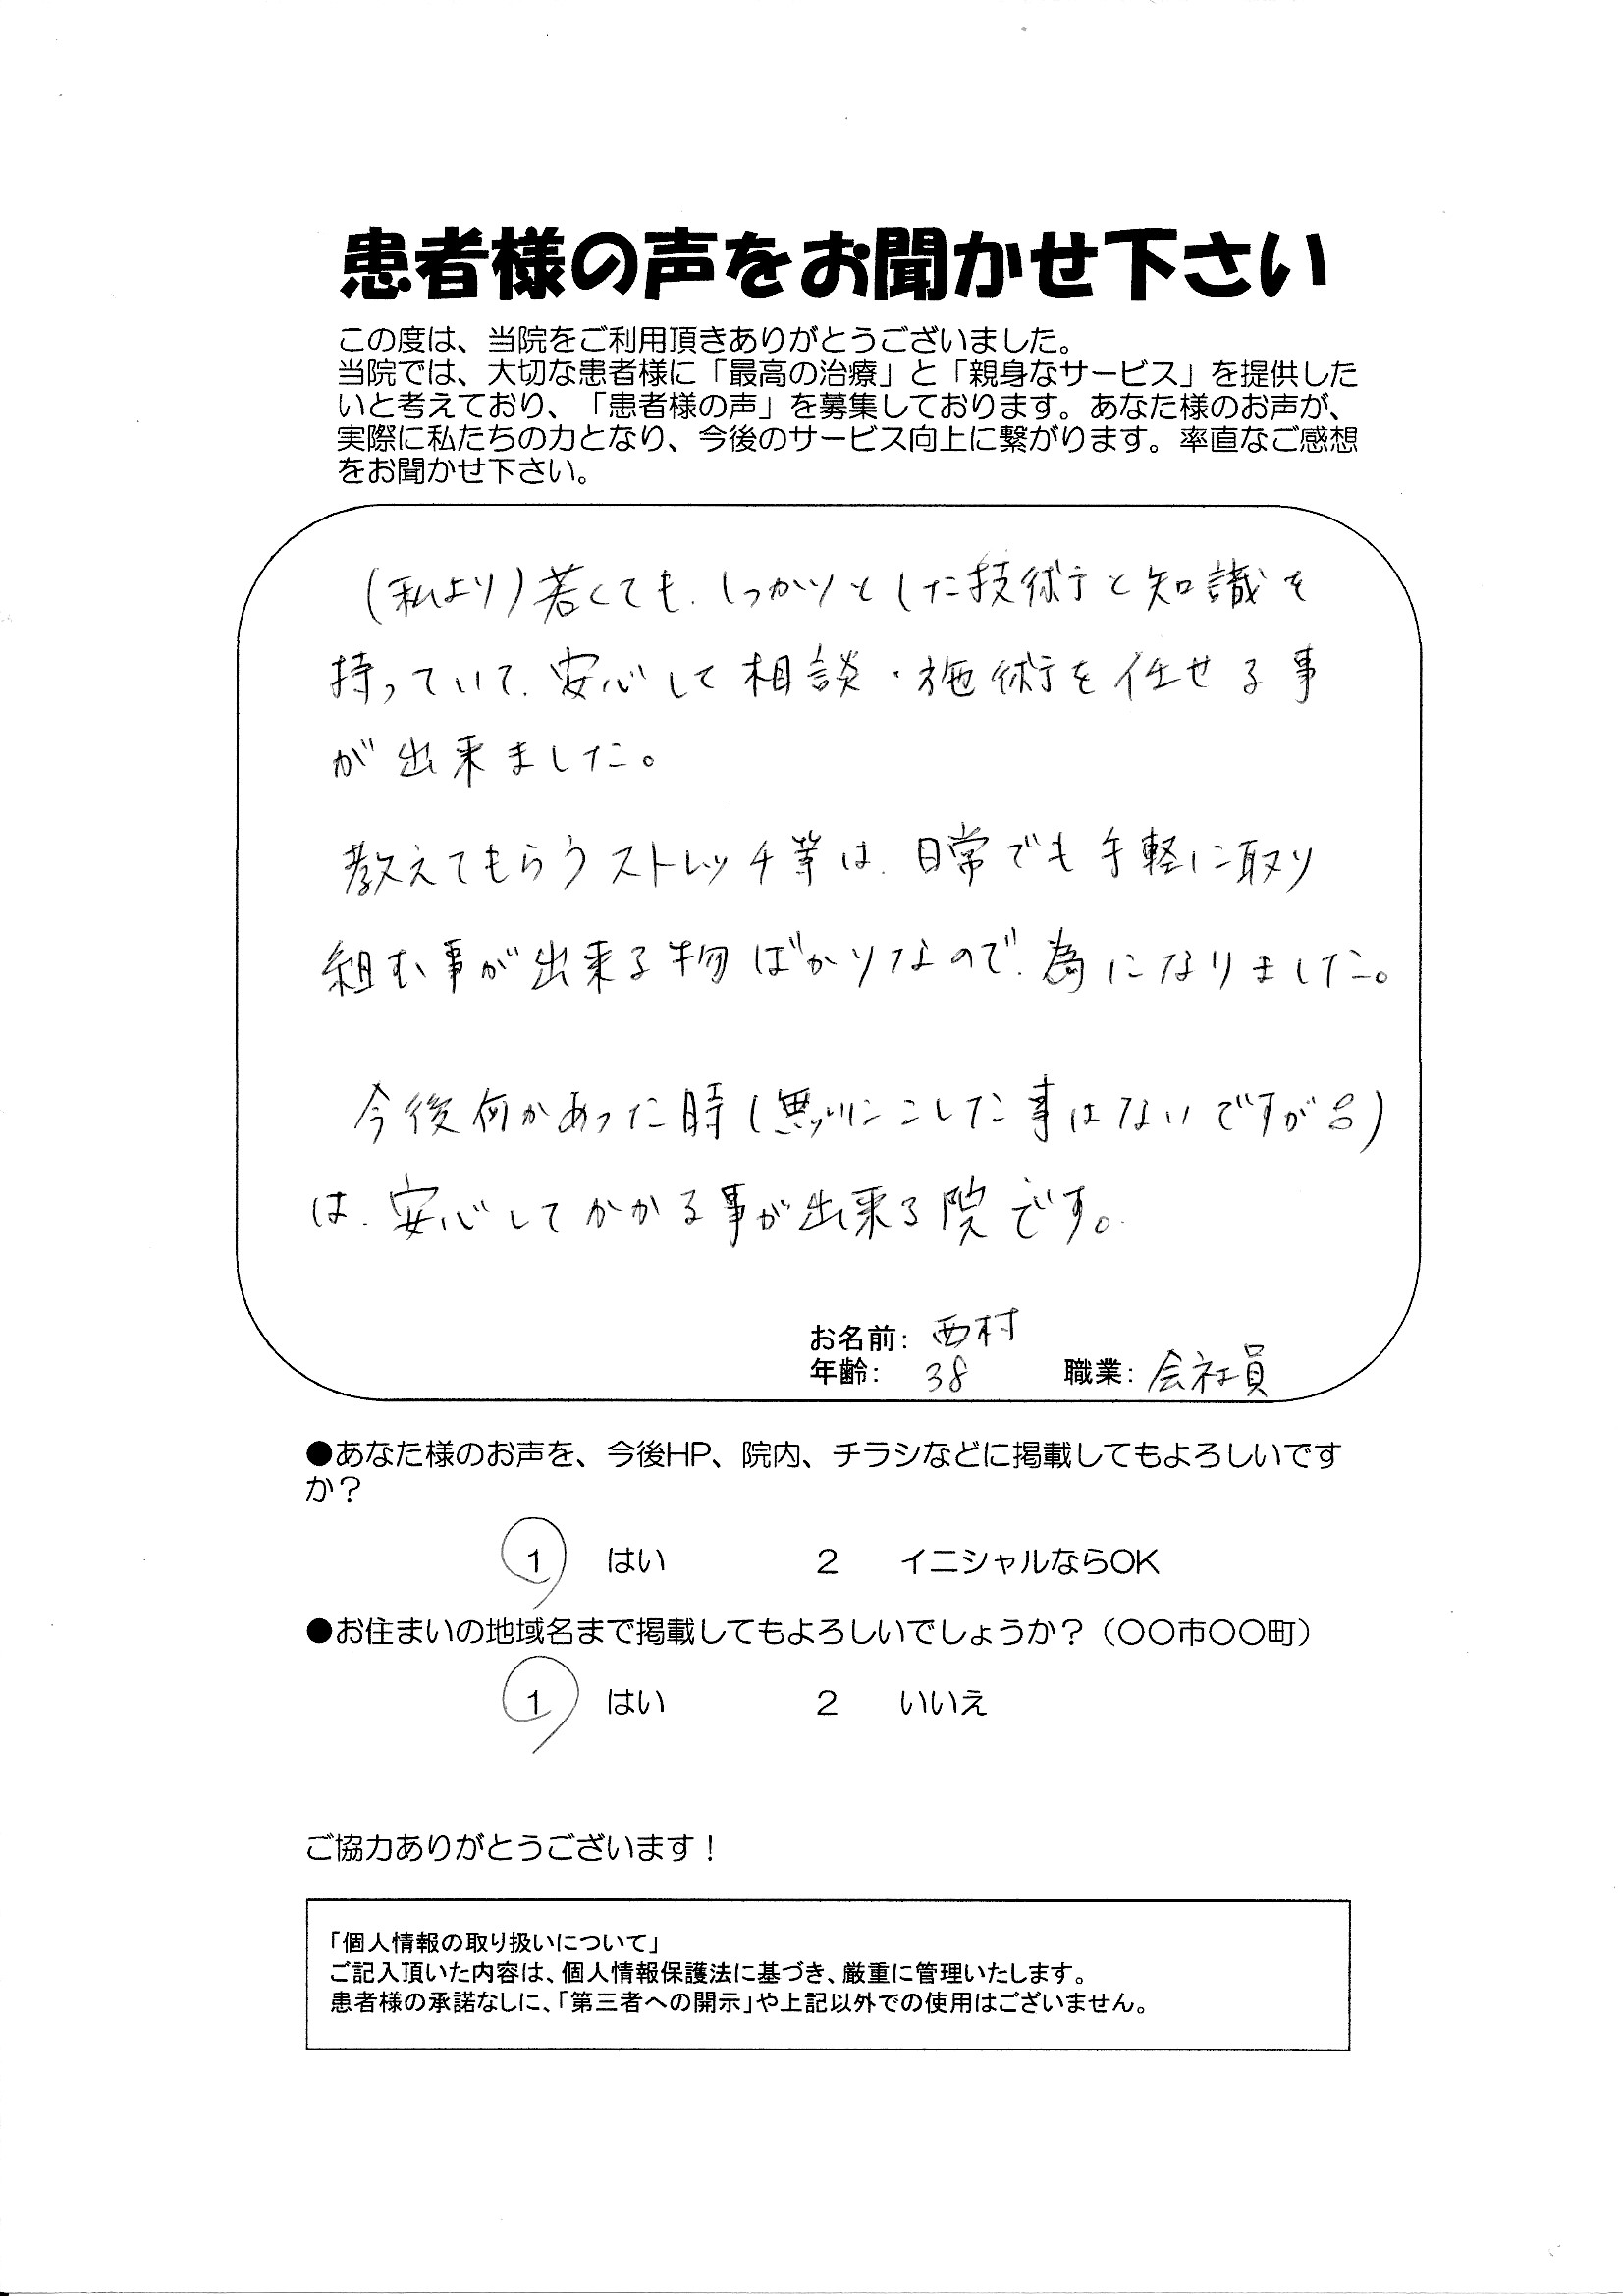 患者様の声をお聞かせ下さい
この度は、当院をご利用頂きありがとうございました。
当院では、大切な患者様に「最高の治療」と「親身なサービス」を提供した
いと考えており、「患者様の声」を募集しております。あなた様のお声が、
実際に私たちの力となり、今後のサービス向上に繋がります。率直なご感想
をお聞かせ下さい。
(私より)若くても、しっかりとした技術と知識を
持っていて、安心して相談・施術を任せる事
が出来ました。
教えてもらうストレッチ等は、日常でも手軽に取り
組む事が出来る物ばかりなので、為になりました。
今後何かあった時(無いにこした事はないですが)
は、安心してかかる事が出来る院です。
お名前: 西村
年齢: 38 職業: 会社員
●あなた様のお声を、今後HP、院内、チラシなどに掲載してもよろしいです
か?
1 はい 2 イニシャルならOK
●お住まいの地域名まで掲載してもよろしいでしょうか?(〇〇市〇〇町)
1 はい 2 いいえ
ご協力ありがとうございます!
「個人情報の取り扱いについて」
ご記入頂いた内容は、個人情報保護法に基づき、厳重に管理いたします。
患者様の承諾なしに、「第三者への開示」や上記以外での使用はございません。